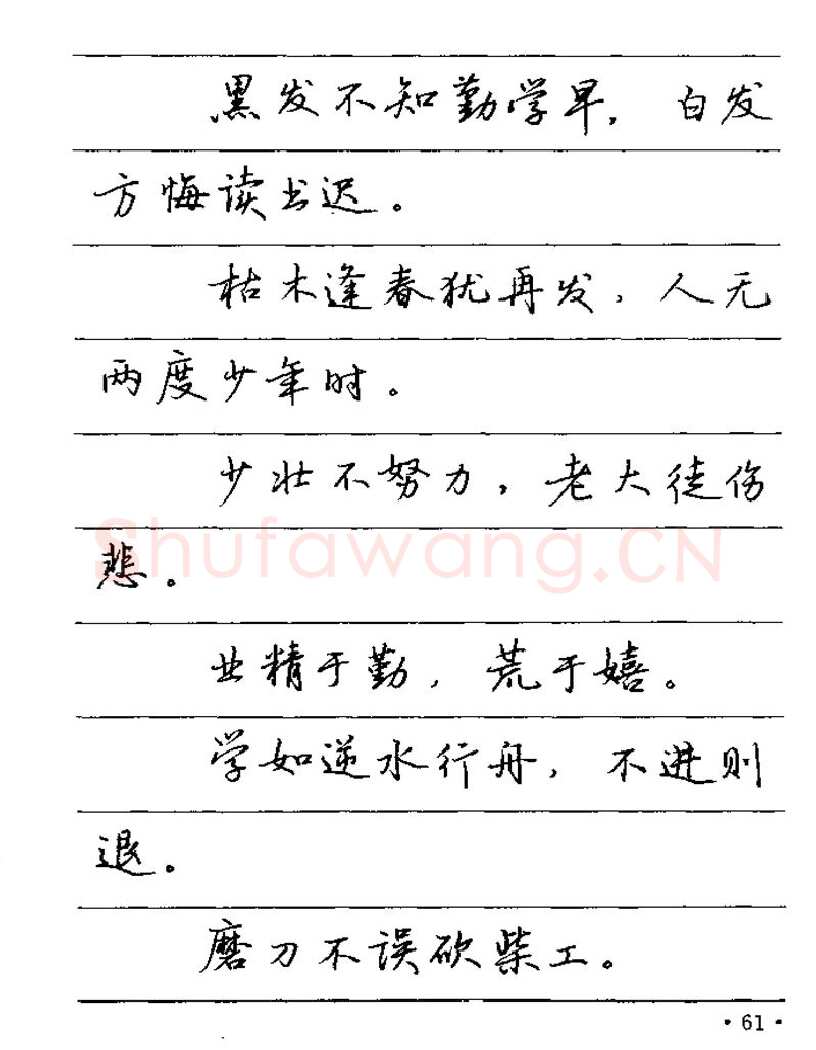 黑发不知勤学早，白发
方悔读书迟。
枯木逢春犹再发，人无
两度少年时。
少壮不努力，老大徒伤
悲。
Shufawang.CN
业精于勤，荒于嬉。
学如逆水行舟，不进则
退。
磨刀不误砍柴工。
·61·